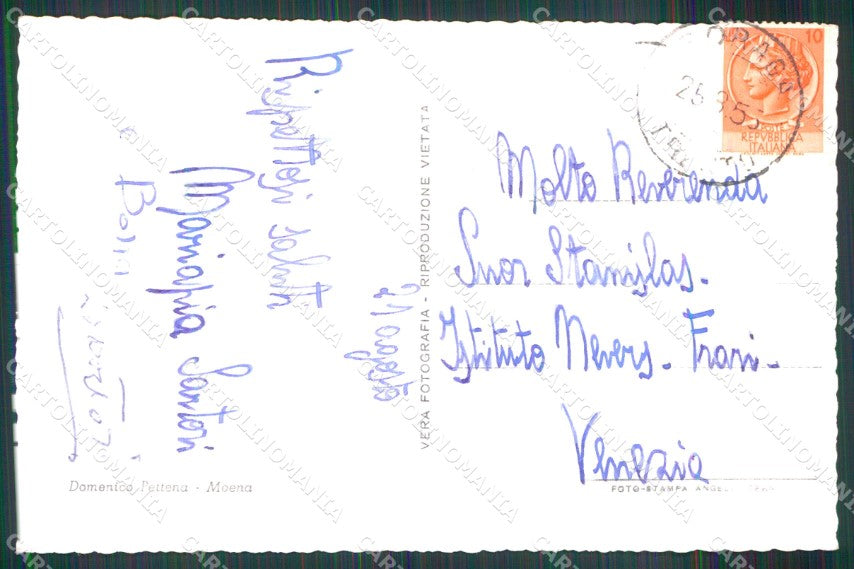 Rispettosi saluti
Mariapia Santori
21 agosto
VERA FOTOGRAFIA - RIPRODUZIONE VIETATA
Domenico Fettena - Moena
10
SORAGA
25.8.53
POSTE
REPUBBLICA
ITALIANA
Molto Reverenda
Suor Stanislas.
Istituto Nevers - Frari -
Venezia
FOTO-STAMPA
CARTOLINOMANIA